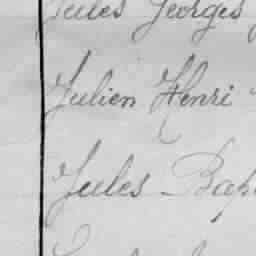 Jules Georges
Julien Henri
Jules Bap